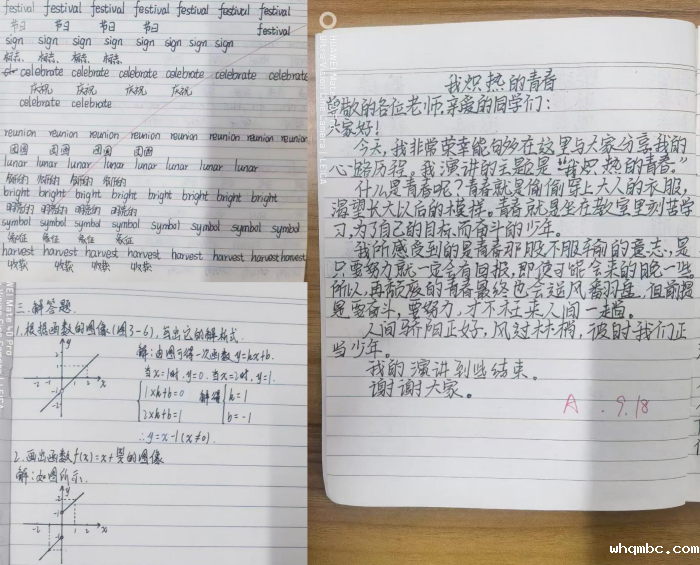 festival festival festival festival festival festival festival
节日 节日 节日 节日 festival
sign sign sign sign sign sign sign sign
标志 标志 标志 标志
celebrate celebrate celebrate celebrate celebrate celebrate
庆祝 庆祝 庆祝 庆祝
celebrate celebrate
reunion reunion reunion reunion reunion reunion reunion
团圆 团圆 团圆 团圆
lunar lunar lunar lunar lunar lunar lunar
阴历的 阴历的 阴历的 阴历的
bright bright bright bright bright bright bright
明亮的 明亮的 明亮的 明亮的
symbol symbol symbol symbol symbol symbol symbol
象征 象征 象征 象征
harvest harvest harvest harvest harvest harvest harvest
收获 收获 收获 收获
三.解答题.
1.根据函数的图像(图3-6),写出它的解析式.
解:由图可得一次函数y=kx+b.
当x=1时,y=0,当x=2时,y=1.
1xk+b=0 解得 k=1
2xk+b=1 b=-1
∴y=x-1(x≠0).
2.画出函数f(x)=x+的图像
解:如图所示.
我炽热的青春
尊敬的各位老师,亲爱的同学们:
大家好!
今天,我非常荣幸能够在这里与大家分享我的
心路历程。我演讲的主题是“我炽热的青春。”
什么是青春呢?青春就是偷偷穿上大人的衣服,
渴望长大以后的模样。青春就是坐在教室里刻苦学
习,为了自己的目标而奋斗的少年。
我所感受到的是青春那股不服输的意志,是
只要努力就一定会有回报,即使可能会来的晚一些
所以,再颓废的青春最终也会迎风翻盘。但前提
是要奋斗,要努力,才不枉来人间一走向。
人间骄阳正好,风过林梢,彼时我们正
当少年。
我的演讲到此结束。
谢谢大家。
A . 9.18
whqmbc.com